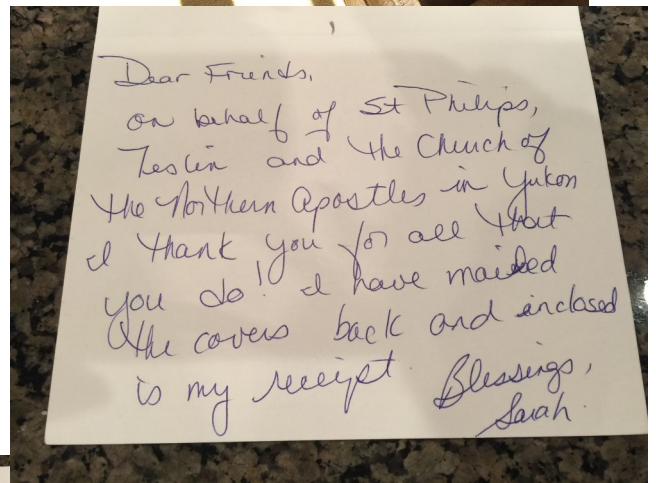 Dear Friends,
on behalf of St Philips,
Teslin and the Church of
the Northern Apostles in Yukon
I thank you for all that
you do! I have mailed
the covers back and inclosed
is my receipt. Blessings,
Sarah.